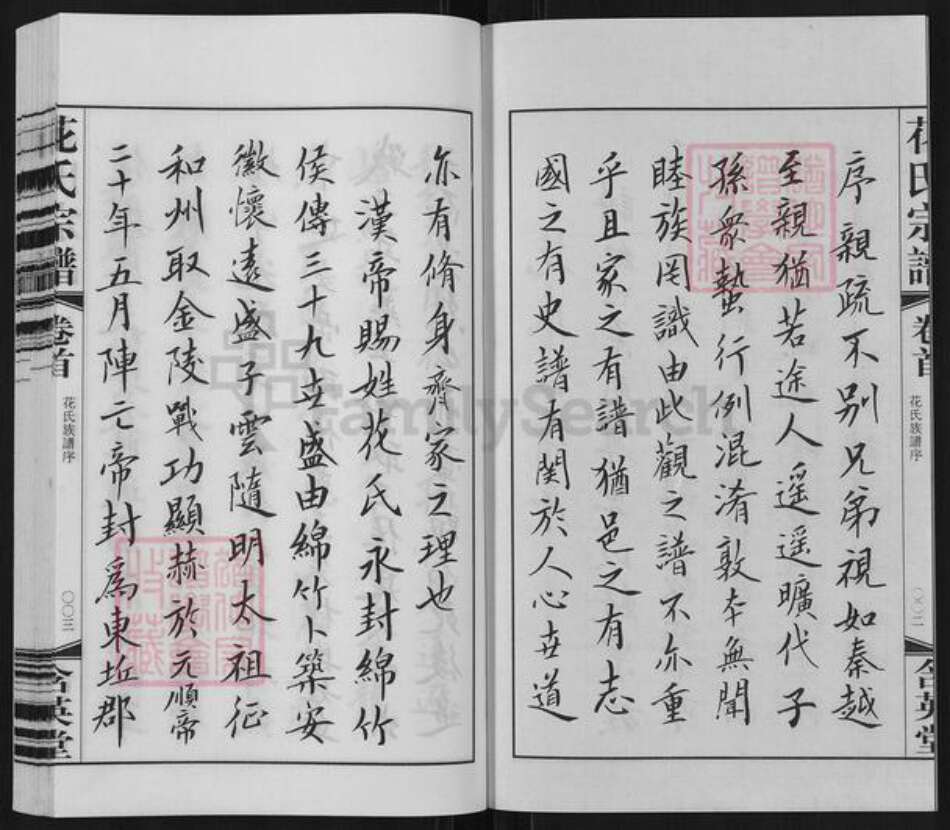 花氏宗譜
卷首
花氏族譜序
〇〇二
含英堂
序親疏不別兄弟視如秦越
至親猶若途人遥遥曠代子
孫眾蟄行例混淆敦本無聞
睦族罔識由此觀之譜不亦重
乎且家之有譜猶邑之有志
國之有史譜有関於人心世道
亦有脩身齊家之理也
漢帝賜姓花氏永封綿竹
侯傳三十九世盛由綿竹卜築安
徽懷遠盛子雲隨明太祖征
和州取金陵戰功顯赫於元順帝
二十年五月陣亡帝封爲東坵郡
花氏宗譜
卷首
花氏族譜序
〇〇三
含英堂
FamilySearch